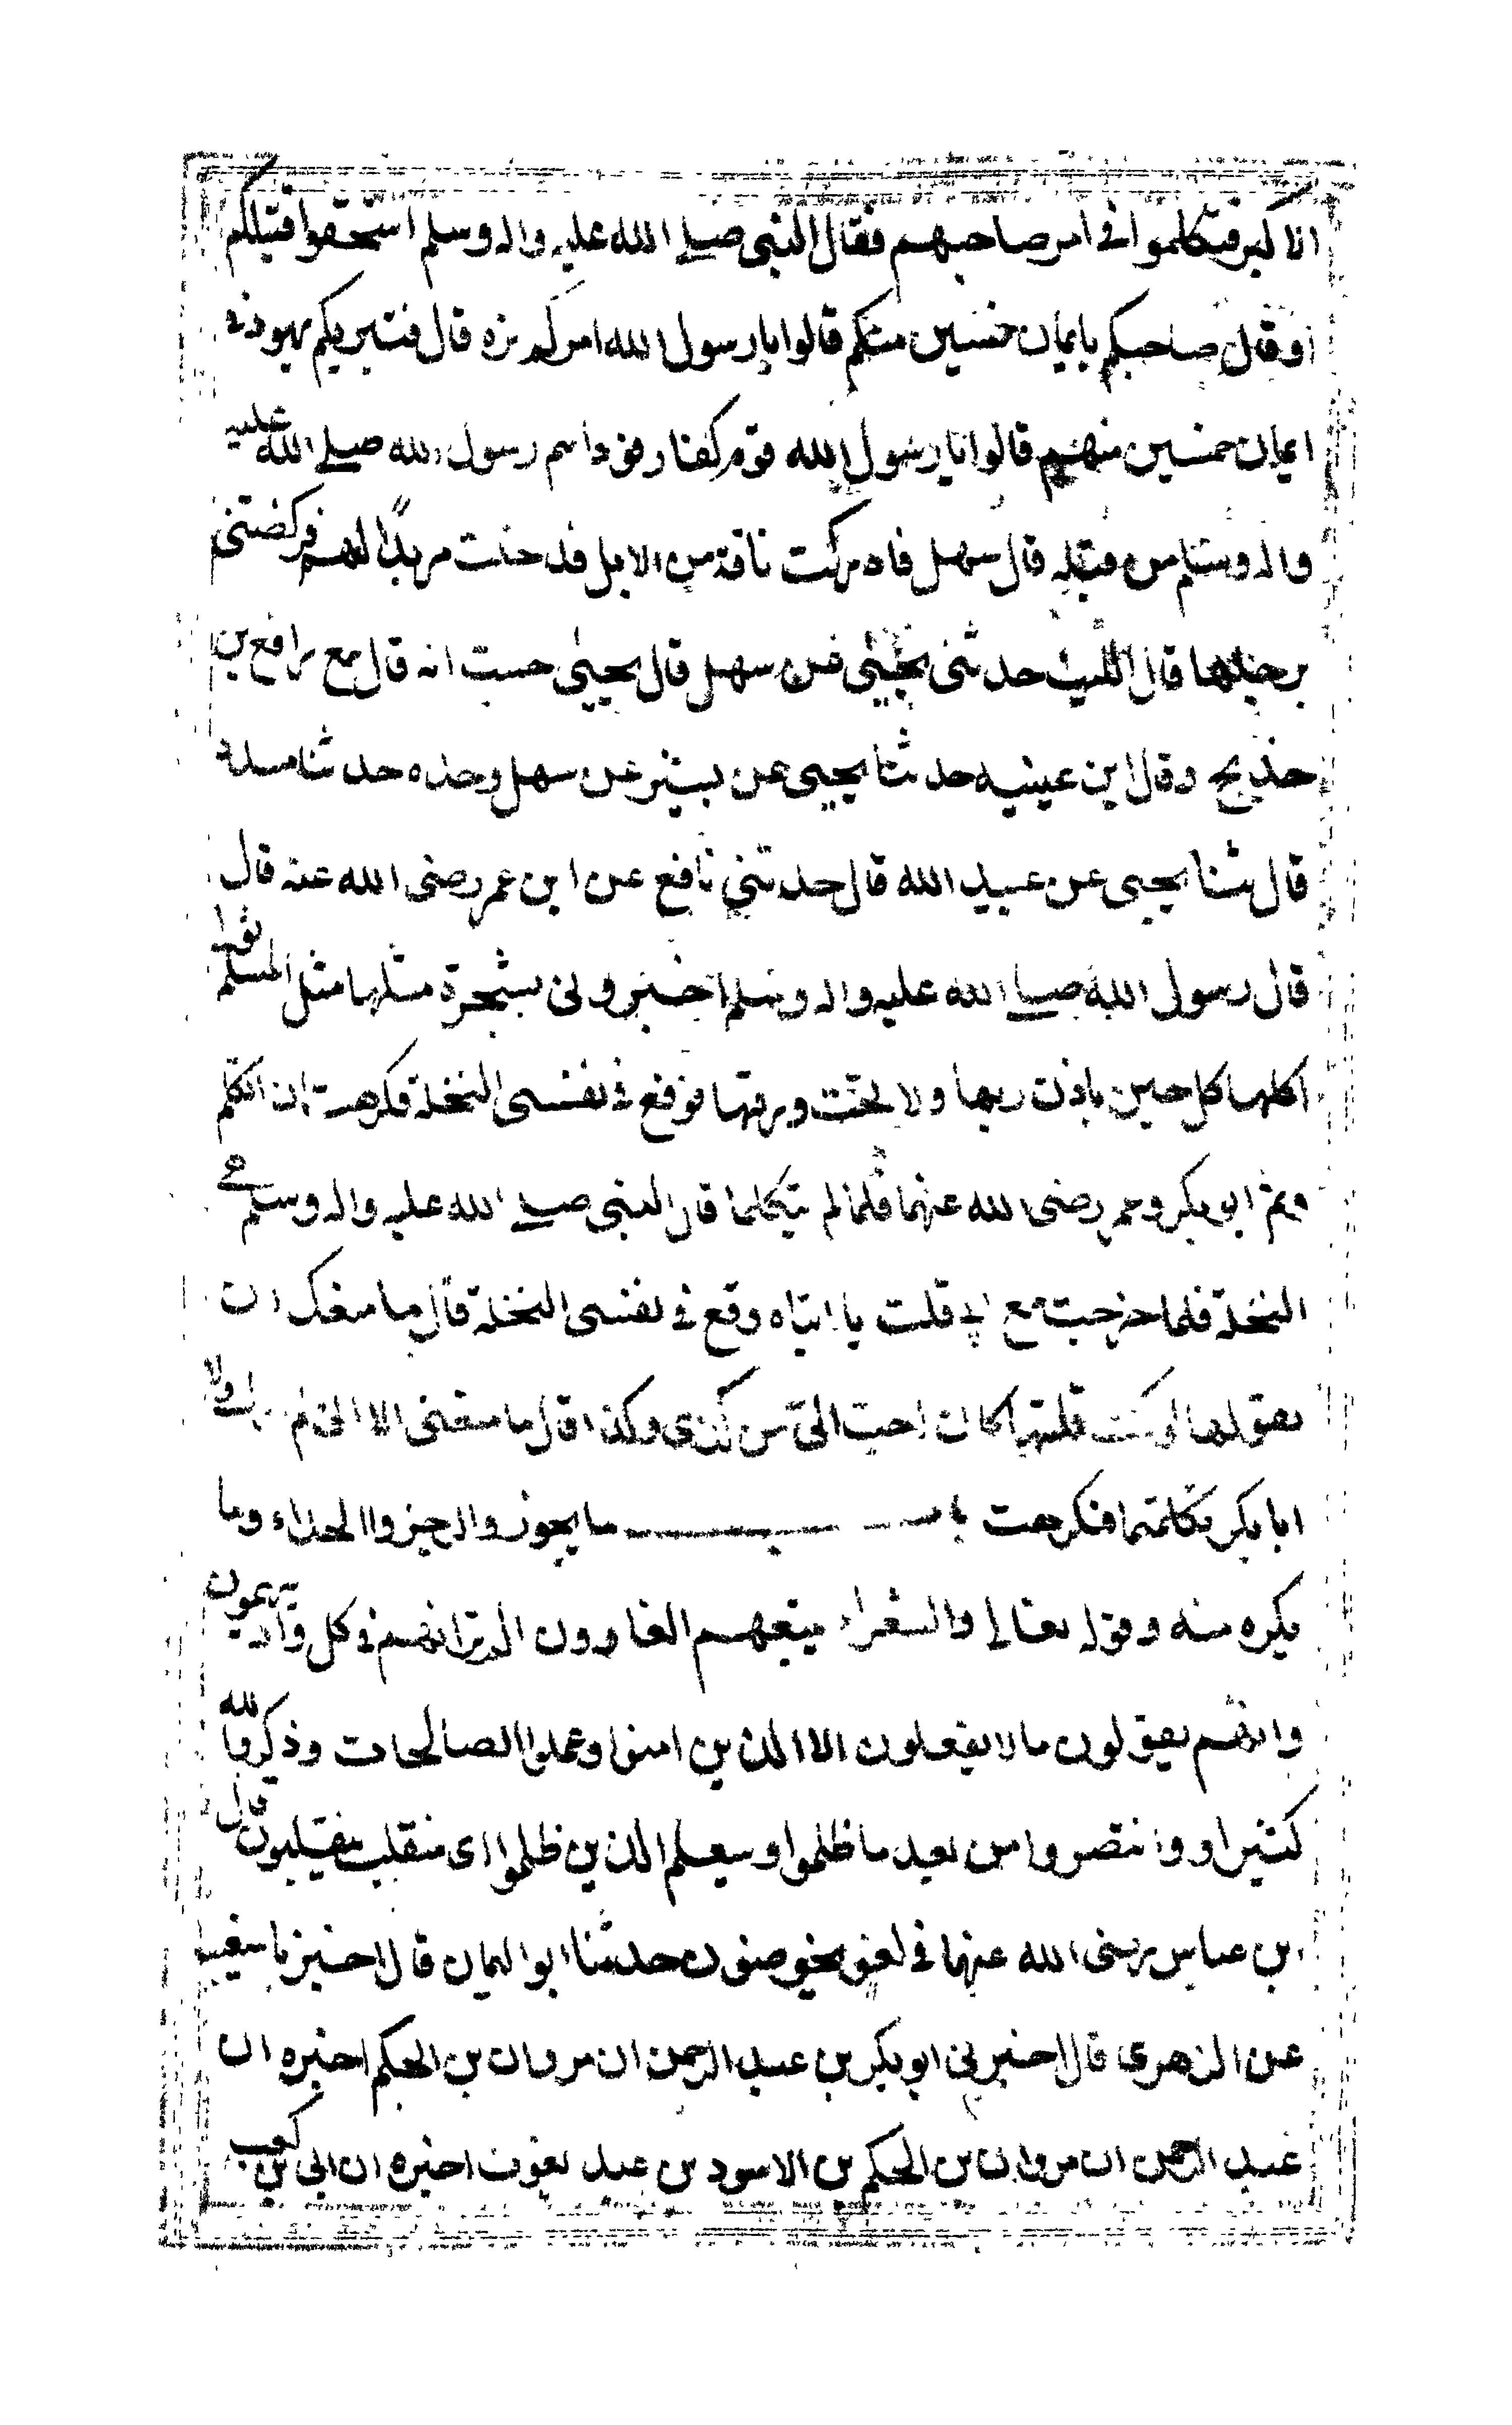 انا كبر فتكلموا في امر صاحبهم فقال النبي صلى الله عليه واله وسلم استحقوا قتيلكم
او قال صاحبكم بايمان خمسين منكم قالوا يا رسول الله امر لم نره قال فتبريكم يهود في
ايمان خمسين منهم قالوا يا رسول الله قوم كفار فوداهم رسول الله صلى الله عليه
واله وسلم من قبله قال سهل فادركت ناقة من الابل فدخلت مربدا لهم فركضتني
برجلها قال الليث حدثني يحيى عن سهل قال يحيى حسبت انه قال مع رافع بن
خذيج وقال ابن عيينه حدثنا يحيى عن بشير عن سهل وحده حدثنا مسدد
قال ثنا يحيى عن عبيد الله قال حدثني نافع عن ابن عمر رضى الله عنه قال
قال رسول الله صلى الله عليه واله وسلم اخبروني بشجرة مثلها مثل المسلم تؤتى
اكلها كل حين باذن ربها ولا تحت ورقها فوقع في نفسى النخلة فكرهت ان اتكلم
وثم ابو بكر وعمر رضى الله عنهما فلما لم يتكلما قال النبي صلى الله عليه واله وسلم هي
النخلة فلما خرجت مع ابي قلت يا ابتاه وقع في نفسى النخلة قال ما منعك ان
تقولها لو كنت قلتها كان احب الى من كذى وكذا قال ما منعنى الا انى لم ارك ولا
ابا بكر تكلمتما فكرهت باب ما يجوز والرجز والحداء وما
يكره منه وقوله تعالى والشعراء يتبعهم الغاوون الم تر انهم في كل واد يهيمون
وانهم يقولون ما لا يفعلون الا الذين امنوا وعملوا الصالحات وذكروا الله
كثيرا و وانتصروا من بعد ما ظلموا وسيعلم الذين ظلموا اى منقلب ينقلبون قال
ابن عباس رضى الله عنهما في لغو يخوضون حدثنا ابو اليمان قال اخبرنا شعيب
عن الزهرى قال اخبرني ابو بكر بن عبد الرحمن ان مروان بن الحكم اخبره ان
عبد الرحمن ان مروان بن الحكم بن الاسود بن عبد يغوث اخبره ان ابي بن كعب